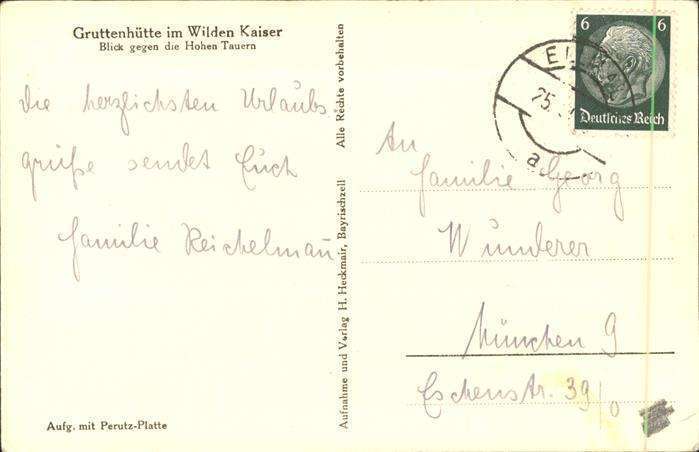 Gruttenhütte im Wilden Kaiser
Blick gegen die Hohen Tauern
Die herzlichsten Urlaubs-
grüße sendet Euch
Familie Reichelmañ
Aufg. mit Perutz-Platte
Aufnahme und Verlag H. Heckmair, Bayrischzell Alle Rechte vorbehalten
6 6
Deutsches Reich
25.
a
An
Familie Georg
Wunderer
München 9
Eschenstr. 39/0